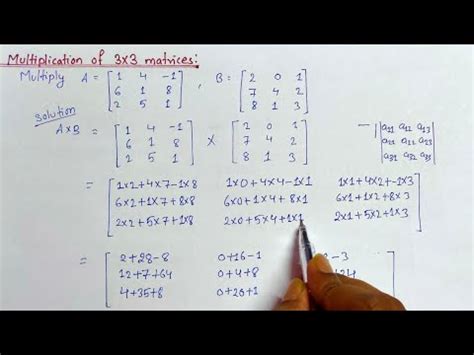 Multiplication of 3x3 matrices:
Multiply A = [1 4 -1] , B = [2 0 1]
[6 1 8] [7 4 2]
[2 5 1] [8 1 3]
Solution
A×B = [1 4 -1] × [2 0 1] - |a11 a12 a13|
[6 1 8] [7 4 2] |a21 a22 a23|
[2 5 1] [8 1 3] |a31 a32 a33|
= [1×2+4×7-1×8 1×0+4×4-1×1 1×1+4×2+-1×3]
[6×2+1×7+8×8 6×0+1×4+8×1 6×1+1×2+8×3]
[2×2+5×7+1×8 2×0+5×4+1×1 2×1+5×2+1×3]
= [2+28-8 0+16-1 -3]
[12+7+64 0+4+8 +24]
[4+35+8 0+20+1